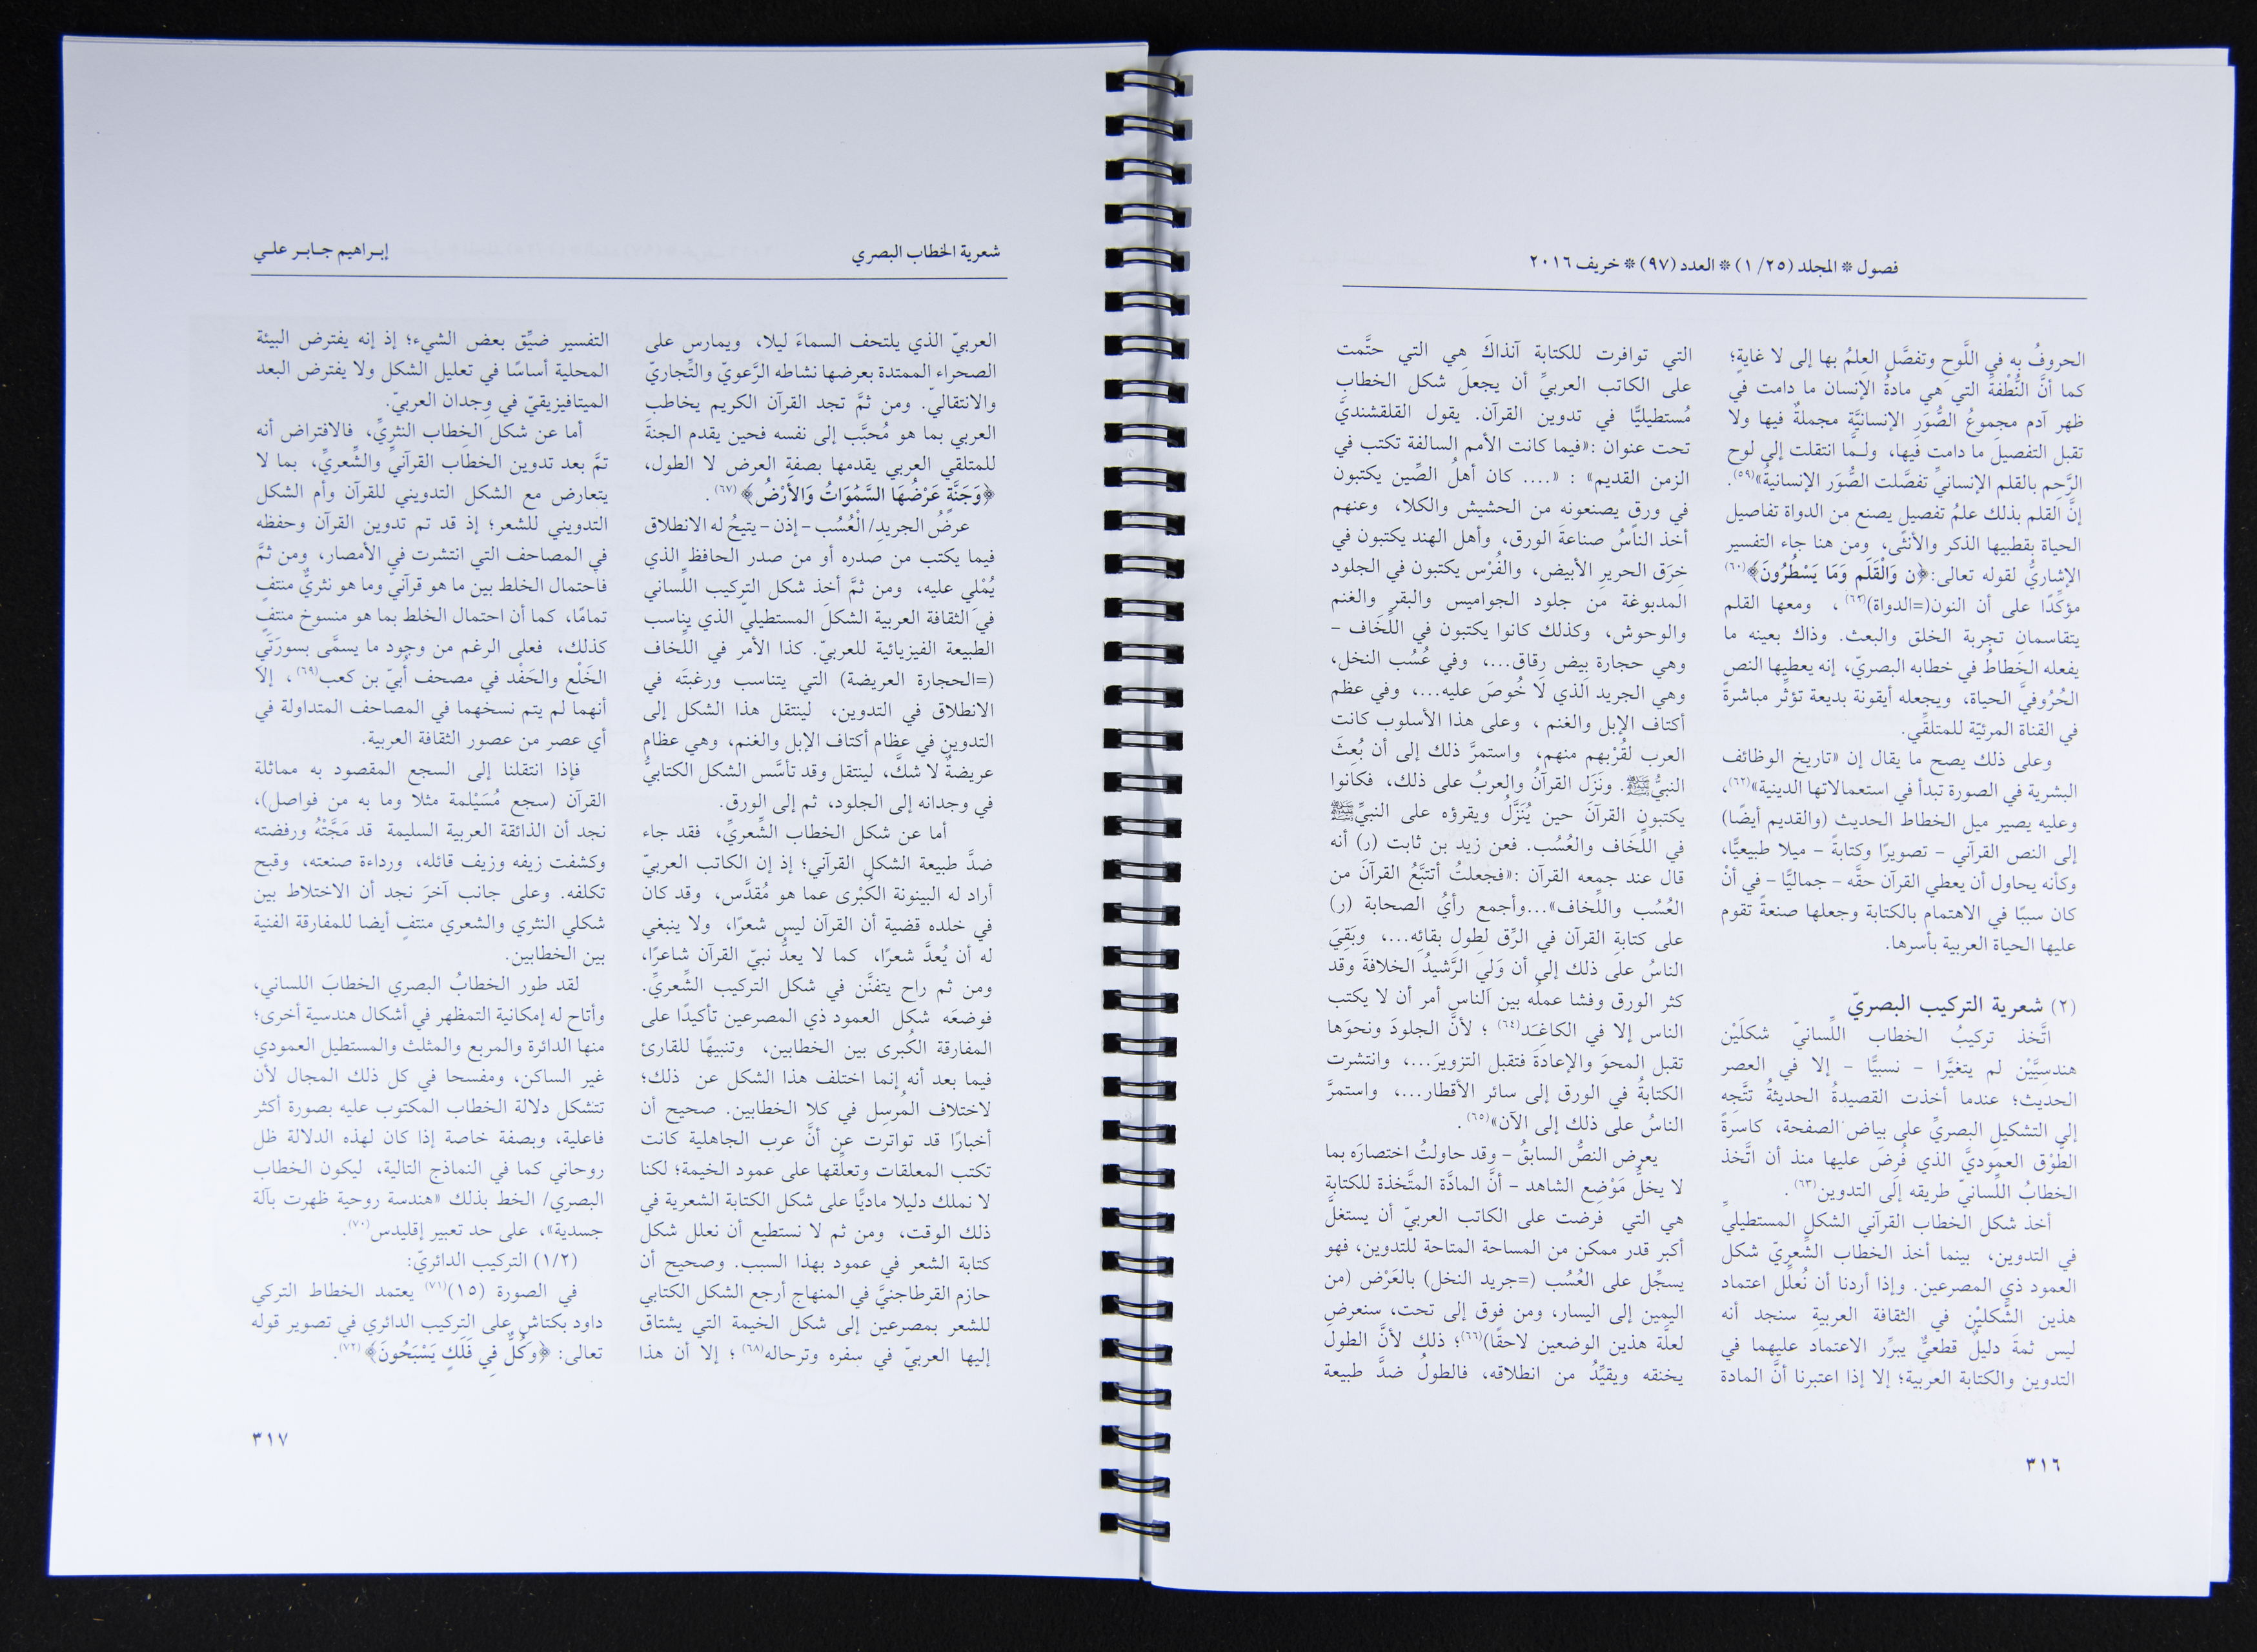 فصول * المجلد (٢٥/ ١) * العدد (٩٧) * خريف ٢٠١٦
الحروفُ به في اللَّوحِ وتفصَّل العِلمُ بها إلى لا غايةٍ؛
كما أنَّ النُّطْفةَ التي هي مادةُ الإنسان ما دامت في
ظهر آدم مجموعُ الصُّوَرِ الإنسانيَّةِ مجملةٌ فيها ولا
تقبل التفصيلَ ما دامت فيها، ولـمَّا انتقلت إلى لوح
الرَّحِم بالقلم الإنسانيِّ تفصَّلت الصُّوَر الإنسانيةُ»(٥٩).
إنَّ القلم بذلك علمُ تفصيلٍ يصنع من الدواة تفاصيل
الحياة بقطبيها الذكر والأنثى، ومن هنا جاء التفسير
الإشاريُّ لقوله تعالى: ﴿ن وَالْقَلَمِ وَمَا يَسْطُرُونَ﴾(٦٠)
مؤكِّدًا على أن النون(=الدواة)، ومعها القلم
يتقاسمانِ تجربة الخلق والبعث. وذاك بعينه ما
يفعله الخطاطُ في خطابه البصريّ، إنه يعطيها النص
الحُرُوفيَّ الحياة، ويجعله أيقونة بديعة تؤثِّر مباشرةً
في القناة المرئيّة للمتلقِّي.
وعلى ذلك يصح ما يقال إن «تاريخ الوظائف
البشرية في الصورة تبدأ في استعمالاتها الدينية»(٦٢)،
وعليه يصير ميل الخطاط الحديث (والقديم أيضًا)
إلى النص القرآني – تصويرًا وكتابةً – ميلا طبيعيًّا،
وكأنه يحاول أن يعطي القرآن حقَّه – جماليًّا – في أنْ
كان سببًا في الاهتمام بالكتابة وجعلها صنعةً تقوم
عليها الحياة العربية بأسرها.
(٢) شعرية التركيب البصريّ
اتَّخذ تركيبُ الخطاب اللِّسانيّ شكلَيْن
هندسِيَّيْن لم يتغيَّرا – نسبيًّا – إلا في العصر
الحديث؛ عندما أخذت القصيدةُ الحديثةُ تتَّجِه
إلى التشكيلِ البصريِّ على بياض الصفحة، كاسرةً
الطَّوْق العموديَّ الذي فُرِضَ عليها منذ أن اتَّخذ
الخطابُ اللِّسانيّ طريقه إلى التدوين(٦٣).
أخذ شكل الخطاب القرآني الشكل المستطيليّ
في التدوين، بينما أخذ الخطاب الشِّعريّ شكل
العمود ذي المصرعين. وإذا أردنا أن نُعلِّل اعتماد
هذين الشَّكليْن في الثقافة العربية سنجد أنه
ليس ثمةَ دليلٌ قطعيٌّ يبرِّر الاعتماد عليهما في
التدوين والكتابة العربية؛ إلا إذا اعتبرنا أنَّ المادة
التي توافرت للكتابة آنذاكَ هي التي حتَّمت
على الكاتب العربيِّ أن يجعلَ شكل الخطابِ
مُستطيليًّا في تدوين القرآن. يقول القلقشنديّ
تحت عنوان :«فيما كانت الأمم السالفة تكتب في
الزمن القديم» : «.... كان أهلُ الصِّين يكتبون
في ورق يصنعونه من الحشيش والكلا، وعنهم
أخذ الناسُ صناعةَ الورق، وأهل الهند يكتبون في
خِرَق الحرير الأبيض، والفُرْس يكتبون في الجلود
المدبوغة من جلود الجواميس والبقر والغنم
والوحوش، وكذلك كانوا يكتبون في اللِّخَاف –
وهي حجارة بِيض رِقاق...، وفي عُسُب النخل،
وهي الجريد الذي لا خُوصَ عليه...، وفي عظم
أكتاف الإبل والغنم ، وعلى هذا الأسلوب كانت
العرب لقُرْبهم منهم، واستمرَّ ذلك إلى أن بُعِثَ
النبيُّ ﷺ. ونَزَل القرآنُ والعربُ على ذلك، فكانوا
يكتبون القرآنَ حين يُنَزَّلُ ويقرؤه على النبيِّ ﷺ
في اللِّخَاف والعُسُب. فعن زيد بن ثابت (ر) أنه
قال عند جمعه القرآن :«فجعلتُ أتتبَّعُ القرآنَ من
العُسُب واللِّخاف»...وأجمع رأيُ الصحابة (ر)
على كتابةِ القرآن في الرَّق لطول بقائِه...، وبَقِيَ
الناسُ على ذلك إلى أن وَلِيَ الرَّشيدُ الخلافةَ وقد
كثر الورق وفشا عملُه بين الناس أمر أن لا يكتب
الناس إلا في الكاغِـَد(٦٤) ؛ لأنَّ الجلودَ ونحوَها
تقبل المحوَ والإعادةَ فتقبل التزويرَ...، وانتشرت
الكتابةُ في الورق إلى سائر الأقطار...، واستمرَّ
الناسُ على ذلك إلى الآن»(٦٥).
يعرض النصُّ السابقُ – وقد حاولتُ اختصارَه بما
لا يخلُّ مَوْضِع الشاهد – أنَّ المادَّة المتَّخذة للكتابةِ
هي التي فرضت على الكاتب العربيّ أن يستغلَّ
أكبر قدر ممكن من المساحة المتاحة للتدوين، فهو
يسجِّل على العُسُب (=جريد النخل) بالعَرْض (من
اليمين إلى اليسار، ومن فوق إلى تحت، سنعرض
لعلَّة هذين الوضعين لاحقًا)(٦٦)؛ ذلك لأنَّ الطول
يخنقه ويقيِّدُ من انطلاقه، فالطولُ ضدَّ طبيعة
٣١٦
شعرية الخطاب البصري
إبـراهيم جـابـر علـي
العربيّ الذي يلتحف السماءَ ليلا، ويمارس على
الصحراء الممتدة بعرضها نشاطه الرَّعويّ والتِّجاريّ
والانتقاليّ. ومن ثمَّ تجد القرآن الكريم يخاطب
العربي بما هو مُحبَّب إلى نفسه فحين يقدم الجنةَ
للمتلقي العربي يقدمها بصفةِ العرض لا الطول،
﴿وَجَنَّةٍ عَرْضُهَا السَّمَٰوَاتُ وَالأَرْضُ﴾ (٦٧).
عرضُ الجريدِ/ الْعُسُب – إذن – يتيحُ له الانطلاق
فيما يكتب من صدره أو من صدر الحافظ الذي
يُمْلي عليه، ومن ثمَّ أخذ شكل التركيب اللِّساني
في الثقافة العربية الشكلَ المستطيليّ الذي يناسب
الطبيعة الفيزيائية للعربيّ. كذا الأمر في اللِّخاف
(=الحجارة العريضة) التي يتناسب ورغبتَه في
الانطلاق في التدوين، لينتقل هذا الشكل إلى
التدوين في عظام أكتاف الإبل والغنم، وهي عظام
عريضةٌ لا شكَّ، لينتقل وقد تأسَّس الشكل الكتابيُّ
في وجدانه إلى الجلود، ثم إلى الورق.
أما عن شكل الخطاب الشِّعريِّ، فقد جاء
ضدَّ طبيعة الشكل القرآني؛ إذ إن الكاتب العربيّ
أراد له البينونة الكُبْرى عما هو مُقدَّس، وقد كان
في خلده قضية أن القرآن ليس شعرًا، ولا ينبغي
له أن يُعدَّ شعرًا، كما لا يعدُّ نبيّ القرآن شاعرًا،
ومن ثم راح يتفنَّن في شكل التركيب الشِّعريِّ.
فوضعَه شكل العمود ذي المصرعين تأكيدًا على
المفارقة الكُبرى بين الخطابين، وتنبيهًا للقارئ
فيما بعد أنه إنما اختلف هذا الشكل عن ذلك؛
لاختلاف المُرسِل في كلا الخطابين. صحيح أن
أخبارًا قد تواترت عن أنَّ عرب الجاهلية كانت
تكتب المعلقات وتعلِّقها على عمود الخيمة؛ لكنا
لا نملك دليلا ماديًّا على شكل الكتابة الشعرية في
ذلك الوقت، ومن ثم لا نستطيع أن نعلل شكل
كتابة الشعر في عمود بهذا السبب. وصحيح أن
حازم القرطاجنيَّ في المنهاج أرجع الشكل الكتابي
للشعر بمصرعين إلى شكل الخيمة التي يشتاق
إليها العربيّ في سفره وترحاله(٦٨) ؛ إلا أن هذا
التفسير ضيِّق بعض الشيء؛ إذ إنه يفترض البيئة
المحلية أساسًا في تعليل الشكل ولا يفترض البعد
الميتافيزيقيّ في وِجدان العربيّ.
أما عن شكل الخطاب النثريِّ، فالافتراض أنه
تمَّ بعد تدوين الخطاب القرآنيِّ والشِّعريِّ، بما لا
يتعارض مع الشكل التدويني للقرآن وأم الشكل
التدويني للشعر؛ إذ قد تم تدوين القرآن وحفظه
في المصاحف التي انتشرت في الأمصار، ومن ثمَّ
فاحتمال الخلط بين ما هو قرآنيّ وما هو نثريٌّ منتفٍ
تمامًا، كما أن احتمال الخلط بما هو منسوخ منتفٍ
كذلك، فعلى الرغم من وجود ما يسمَّى بسورَتَي
الخَلْع والحَفْد في مصحف أُبيّ بن كعب(٦٩)، إلا
أنهما لم يتم نسخهما في المصاحف المتداولة في
أي عصر من عصور الثقافة العربية.
فإذا انتقلنا إلى السجع المقصود به مماثلة
القرآن (سجع مُسَيْلمة مثلا وما به من فواصل)،
نجد أن الذائقة العربية السليمة قد مَجَّتْهُ ورفضته
وكشفت زيفه وزيف قائله، ورداءة صنعته، وقبح
تكلفه. وعلى جانب آخرَ نجد أن الاختلاط بين
شكلي النثري والشعري منتفٍ أيضا للمفارقة الفنية
بين الخطابين.
لقد طور الخطابُ البصري الخطابَ اللساني،
وأتاح له إمكانية التمظهر في أشكال هندسية أخرى؛
منها الدائرة والمربع والمثلث والمستطيل العمودي
غير الساكن، ومفسحا في كل ذلك المجال لأن
تتشكل دلالة الخطاب المكتوب عليه بصورة أكثر
فاعلية، وبصفة خاصة إذا كان لهذه الدلالة ظل
روحاني كما في النماذج التالية، ليكون الخطاب
البصري/ الخط بذلك «هندسة روحية ظهرت بآلة
جسدية»، على حد تعبير إقليدس(٧٠).
(١/٢) التركيب الدائريّ:
في الصورة (١٥)(٧١) يعتمد الخطاط التركي
داود بكتاش على التركيب الدائري في تصوير قوله
تعالى: ﴿وَكُلٌّ فِي فَلَكٍ يَسْبَحُونَ﴾(٧٢).
٣١٧